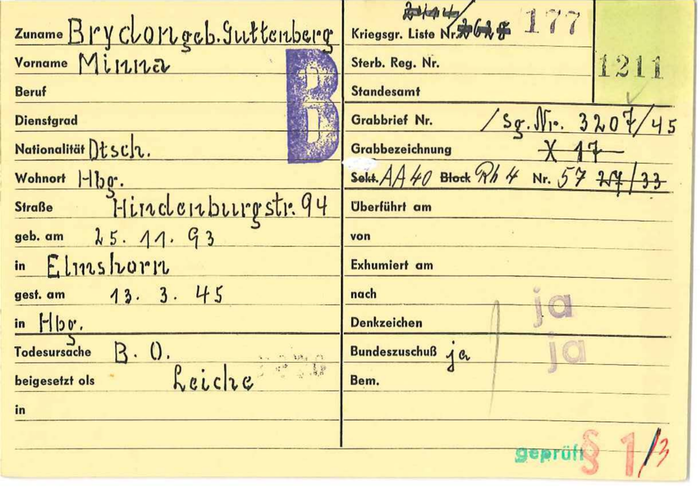 Zuname Brydon geb. Guttenberg
Vorname Minna
Beruf
Dienstgrad
Nationalität Dtsch.
Wohnort Hbg.
Straße Hindenburgstr. 94
geb. am 25. 11. 93
in Elmshorn
gest. am 13. 3. 45
in Hbg.
Todesursache B. O.
beigesetzt als Leiche
in
B
Kriegsgr. Liste Nr. 177
1211
Sterb. Reg. Nr.
Standesamt
Grabbrief Nr. / Sg. Nr. 3207/45
Grabbezeichnung X 17
Sekt. AA40 Block Rh 4 Nr. 57 27/33
Überführt am
von
Exhumiert am
nach ja
Denkzeichen
Bundeszuschuß ja ja
Bem.
geprüft § 1/3